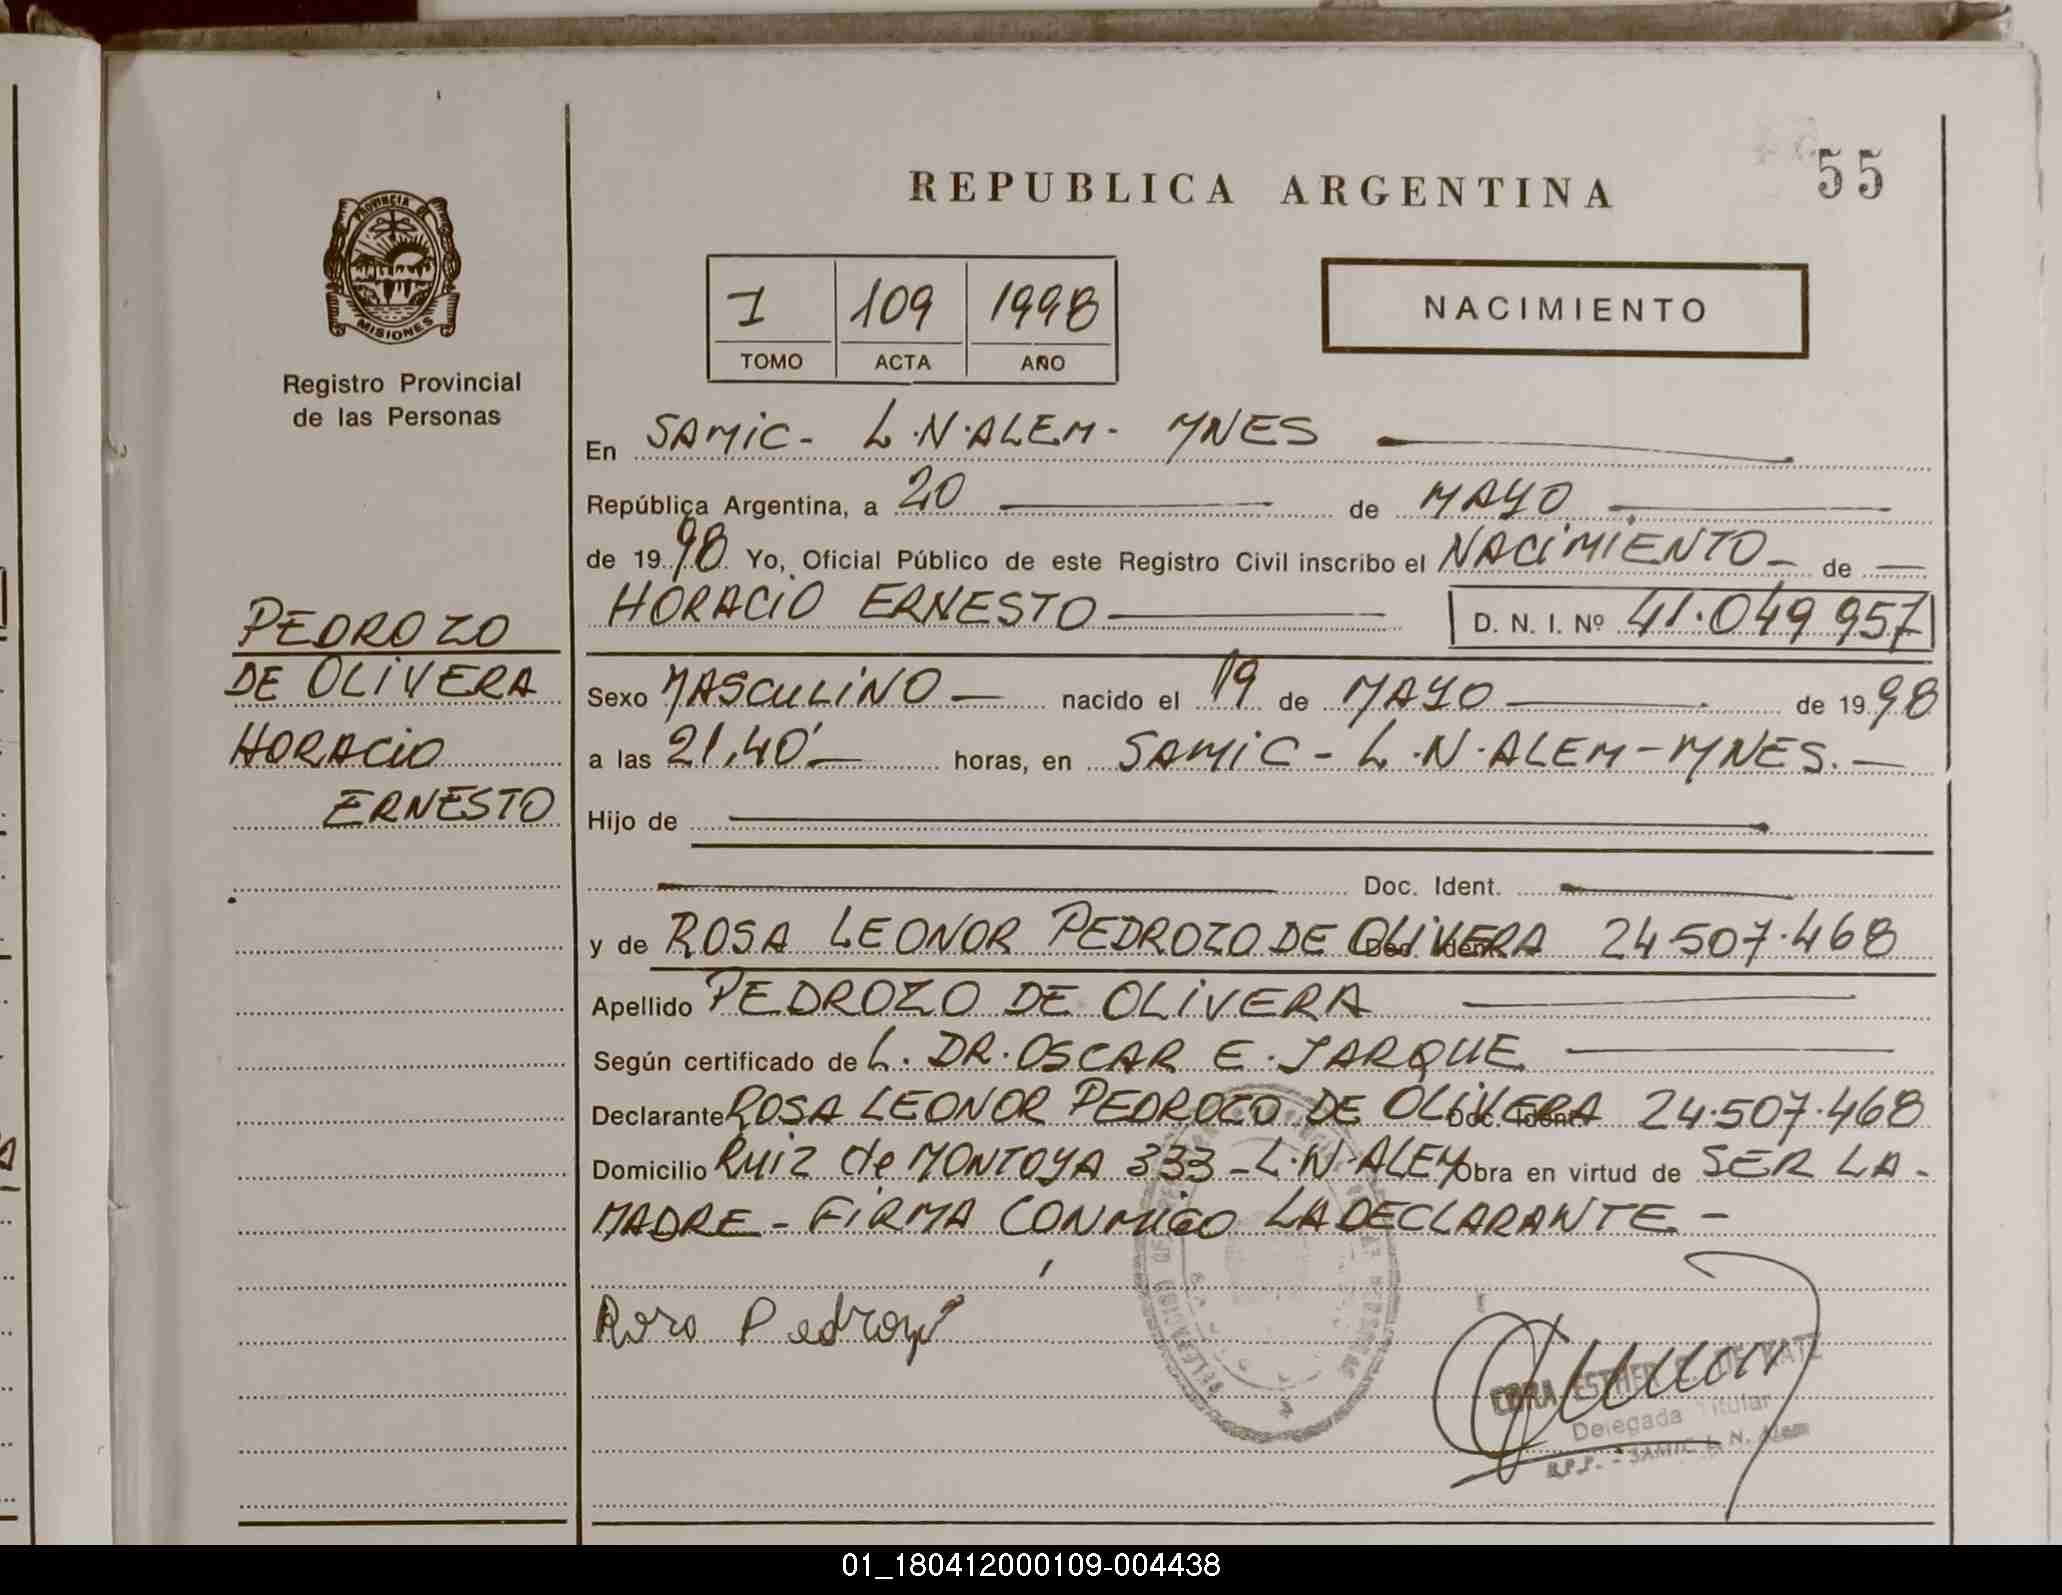 REPUBLICA ARGENTINA
55
PROVINCIA DE
MISIONES
Registro Provincial
de las Personas
I 109 1998
TOMO ACTA AÑO
NACIMIENTO
En SAMIC- L.N.ALEM- MNES
República Argentina, a 20 de MAYO
de 1998 Yo, Oficial Público de este Registro Civil inscribo el NACIMIENTO de
HORACIO ERNESTO D. N. I. Nº 41.049 957
PEDROZO
DE OLIVERA
HORACIO
ERNESTO
Sexo MASCULINO nacido el 19 de MAYO de 1998
a las 21,40' horas, en SAMIC - L.N.ALEM-MNES.
Hijo de
Doc. Ident.
y de ROSA LEONOR PEDROZO DE OLIVERA Doc. Ident. 24.507.468
Apellido PEDROZO DE OLIVERA
Según certificado de L. DR. OSCAR E. JARQUE
Declarante ROSA LEONOR PEDROZO DE OLIVERA Doc. Ident. 24.507.468
Domicilio RUIZ de MONTOYA 333-L.N.ALEM Obra en virtud de SER LA-
MADRE - FIRMA CONMIGO LA DECLARANTE-
Rosa Pedrozo
ESTHER
Delegada Titular
R.P.P. - SAMIC L. N. Alem
01_180412000109-004438